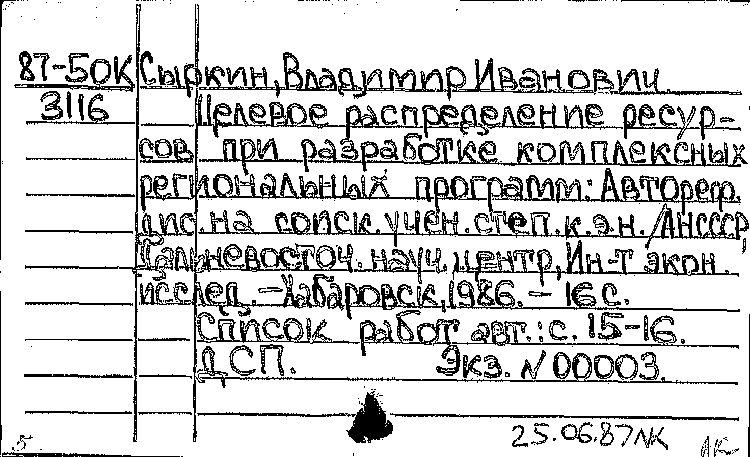 87-50К Сыркин, Владимир Иванович
3116 Целевое распределение ресур-
сов при разработке комплексных
региональных программ: Автореф.
дис. на соиск. учен. степ. к.э.н. /АНСССР,
Дальневосточ. науч. центр, Ин-т экон.
исслед. – Хабаровск, 1986. – 16 с.
Список работ авт.: с. 15-16.
ДСП. Экз. N 00003.
25.06.87 ЛК
5